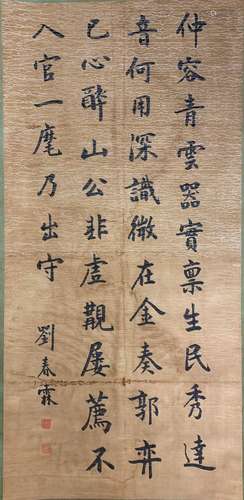 仲容青雲器實禀生民秀達
音何用深識微在金奏郭弈
已心醉山公非虛觀屡薦不
入官一麾乃出守
劉春霖